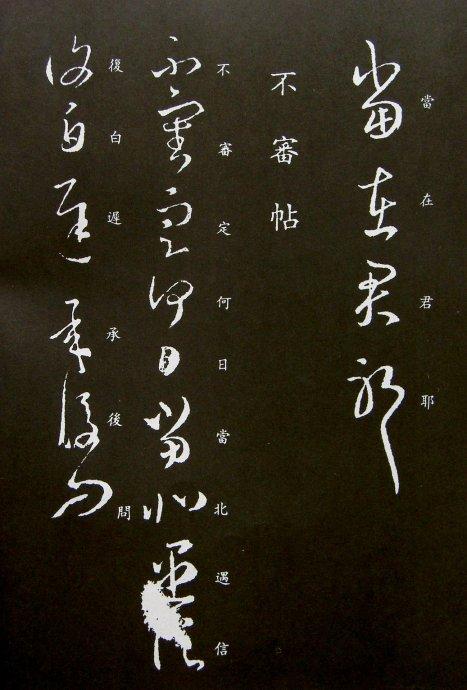 當在君耶
不審帖
不審定何日當北遇信
復白遲承後問